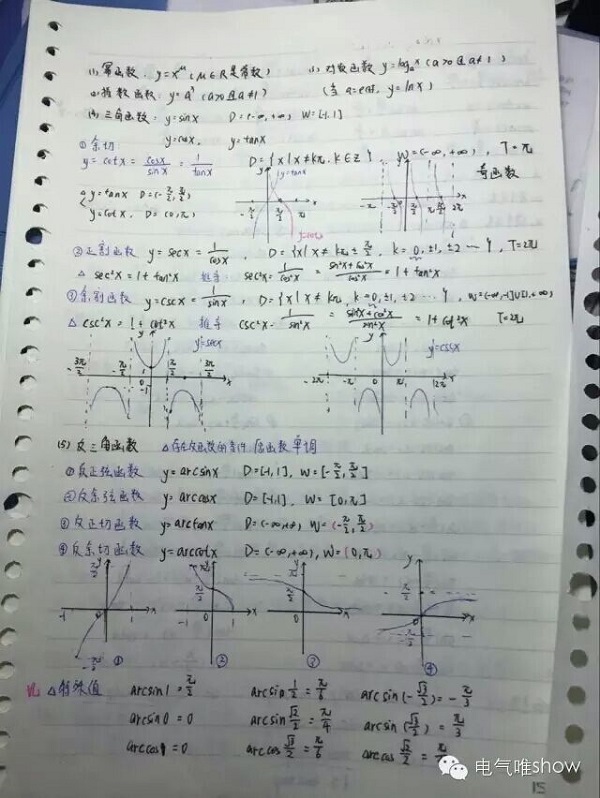 (1) 幂函数. y=x^μ (μ∈R是常数)
(3) 对数函数 y=log_a x (a>0且a≠1)
(2) 指数函数. y=a^x (a>0且a≠1)
(当 a=e时, y=lnx)
(4) 三角函数. y=sinx D=(-∞,+∞) W=[-1,1]
y=cosx, y=tanx
① 余切
y=cotx=cosx/sinx=1/tanx D={x|x≠kπ, k∈Z} W=(-∞,+∞), T=π
奇函数
y=tanx D=(-π/2, π/2)
y=cotx, D=(0,π)
y=tanx
y=cotx
-π/2 π/2 x y
-π π/2 π 2π x
②正割函数 y=secx=1/cosx, D={x|x≠kπ±π/2, k=0,±1,±2…}, T=2π
△ sec²x=1+tan²x 推导 sec²x=1/cos²x=(sin²x+cos²x)/cos²x=1+tan²x
③余割函数 y=cscx=1/sinx, D={x|x≠kπ, k=0,±1,±2…}, W=(-∞,-1]∪[1,+∞)
△ csc²x=1+cot²x 推导 csc²x=1/sin²x=(sin²x+cos²x)/sin²x=1+cot²x T=2π
y y=secx
-3π/2 -π/2 0 π/2 3π/2 x
-1
y y=cscx
-2π -π 0 π 2π x
(5) 反三角函数 △存在反函数的条件:原函数单调
①反正弦函数 y=arcsinx D=[-1,1], W=[-π/2, π/2]
②反余弦函数 y=arccosx D=[-1,1], W=[0,π]
③反正切函数 y=arctanx D=(-∞,+∞) W=(-π/2, π/2)
④反余切函数 y=arccotx D=(-∞,+∞), W=(0,π)
π/2 y -1 0 1 x -π/2 ①
π y π/2 -1 1 x ②
y π π/2 0 x ③
y π/2 0 x -π/2 ④
记 △特殊值 arcsin1=π/2 arcsin1/2=π/6 arcsin(-√3/2)=-π/3
arcsin0=0 arcsin√2/2=π/4 arcsin(√3/2)=π/3
arccos1=0 arccos√3/2=π/6 arccos√2/2=
电气唯show
15